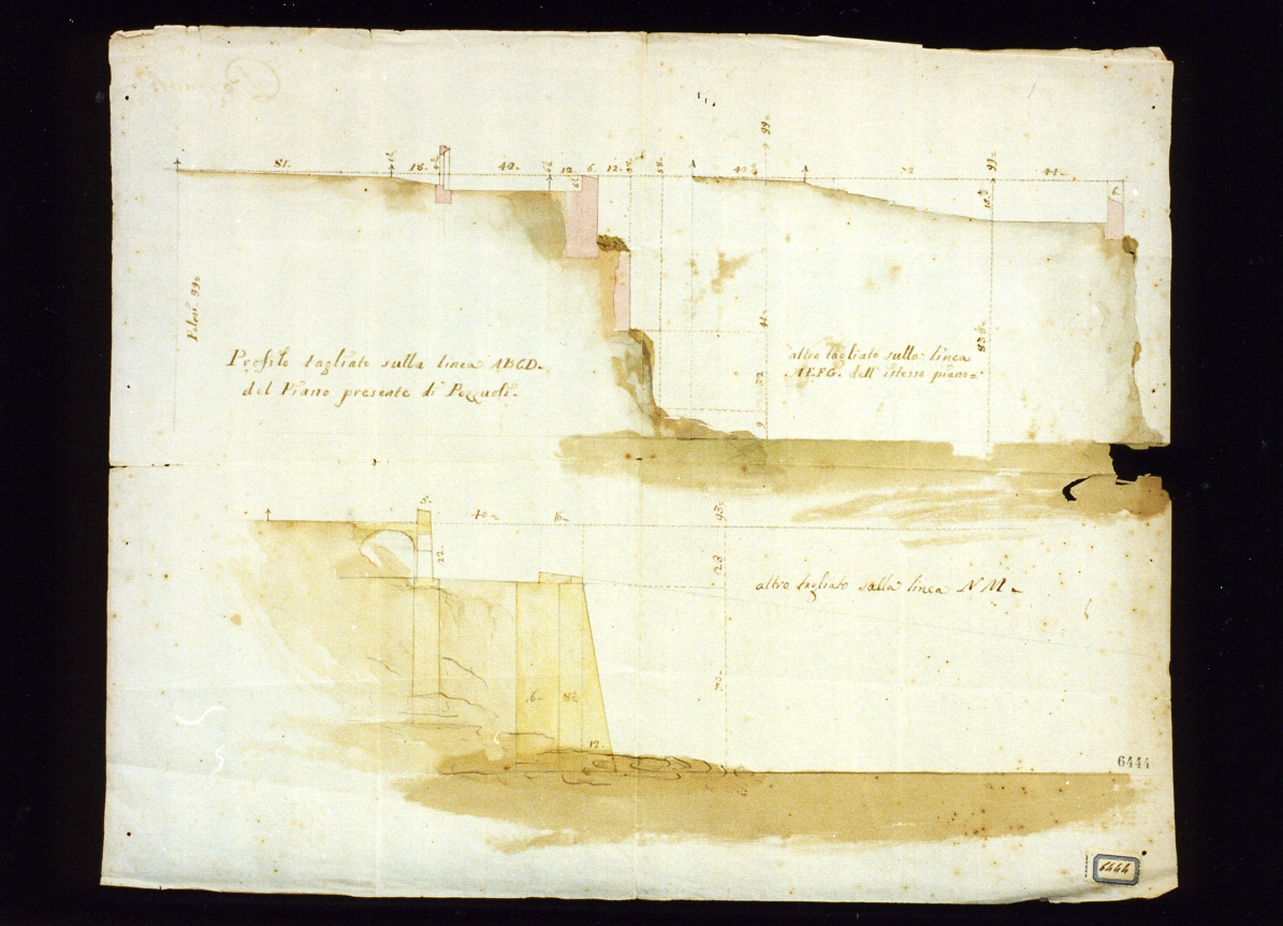 81.
18.
42.
12.
6.
12.
99
44.
6.
Palmi 99.
Profilo tagliato sulla linea ABCD.
del Piano presente di Pozzuoli.
altro tagliato sulla linea
AEFG. dell' istesso piano=
32
9
5.
40
16
93
22.
23
altro tagliato sulla linea N M.
70
16
12.
6444
6444